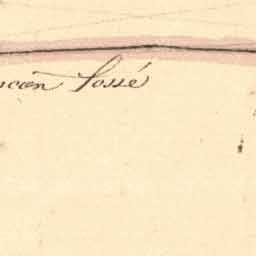 ncien fossé